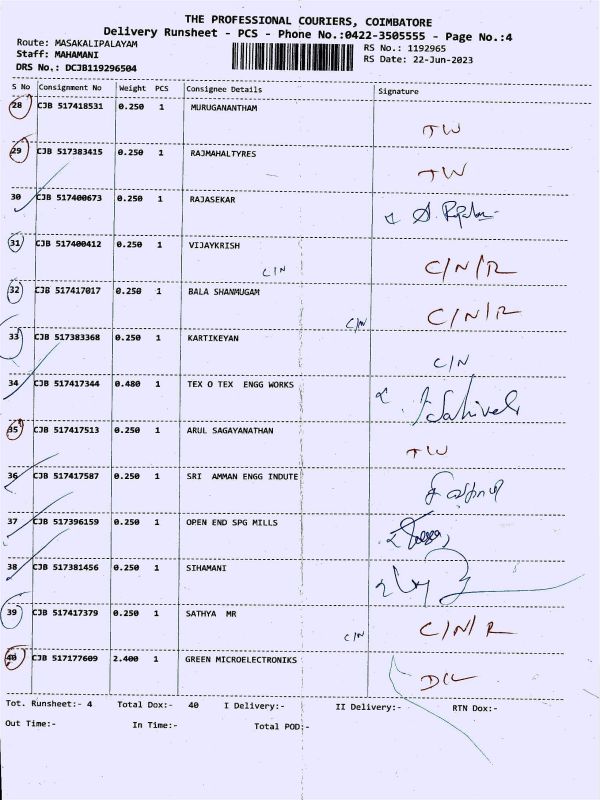 THE PROFESSIONAL COURIERS, COIMBATORE
Delivery Runsheet - PCS - Phone No.:0422-3505555 - Page No.:4
Route: MASAKALIPALAYAM
RS No.: 1192965
Staff: MAHAMANI
RS Date: 22-Jun-2023
DRS No.: DCJB119296504
S No Consignment No Weight PCS Consignee Details Signature
28 CJB 517418531 0.250 1 MURUGANANTHAM
TW
29 CJB 517383415 0.250 1 RAJMAHALTYRES
TW
30 CJB 517400673 0.250 1 RAJASEKAR
31 CJB 517400412 0.250 1 VIJAYKRISH
C/N C/N/R
32 CJB 517417017 0.250 1 BALA SHANMUGAM
C/N C/N/R
33 CJB 517383368 0.250 1 KARTIKEYAN
C/N
34 CJB 517417344 0.480 1 TEX O TEX ENGG WORKS
35 CJB 517417513 0.250 1 ARUL SAGAYANATHAN
TW
36 CJB 517417587 0.250 1 SRI AMMAN ENGG INDUTE
37 CJB 517396159 0.250 1 OPEN END SPG MILLS
38 CJB 517381456 0.250 1 SIHAMANI
39 CJB 517417379 0.250 1 SATHYA MR
C/N C/N/R
40 CJB 517177609 2.400 1 GREEN MICROELECTRONIKS
D/L
Tot. Runsheet:- 4 Total Dox:- 40 I Delivery:- II Delivery:- RTN Dox:-
Out Time:- In Time:- Total POD:-